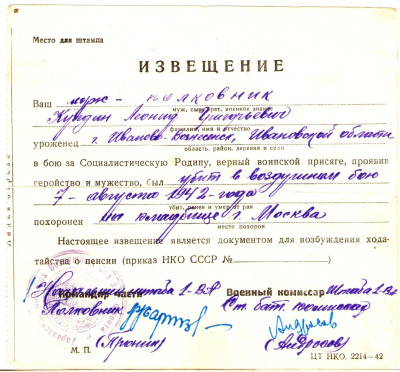 Место для штампа
ИЗВЕЩЕНИЕ
Ваш муж - полковник
муж, сын, брат, военное звание
Леонид Григорьевич
фамилия, имя и отчество
уроженец г. Иваново-Вознесенск, Ивановской области
область, район, деревня и село
в бою за Социалистическую Родину, верный воинской присяге, проявив
геройство и мужество, был убит в воздушном бою
7 - августа 1942 - года
убит, ранен и умер от ран
похоронен на кладбище г. Москва
место похорон
Настоящее извещение является документом для возбуждения хода-
тайства о пенсии (приказ НКО СССР №                )
Начальник штаба 1-ВА
Командир части
Военный комиссар Штаба 1-ВА
Полковник
Ст. бат. комиссар
М. П. (Пронин)
(Андросов)
ЦТ НКО. 2214-42